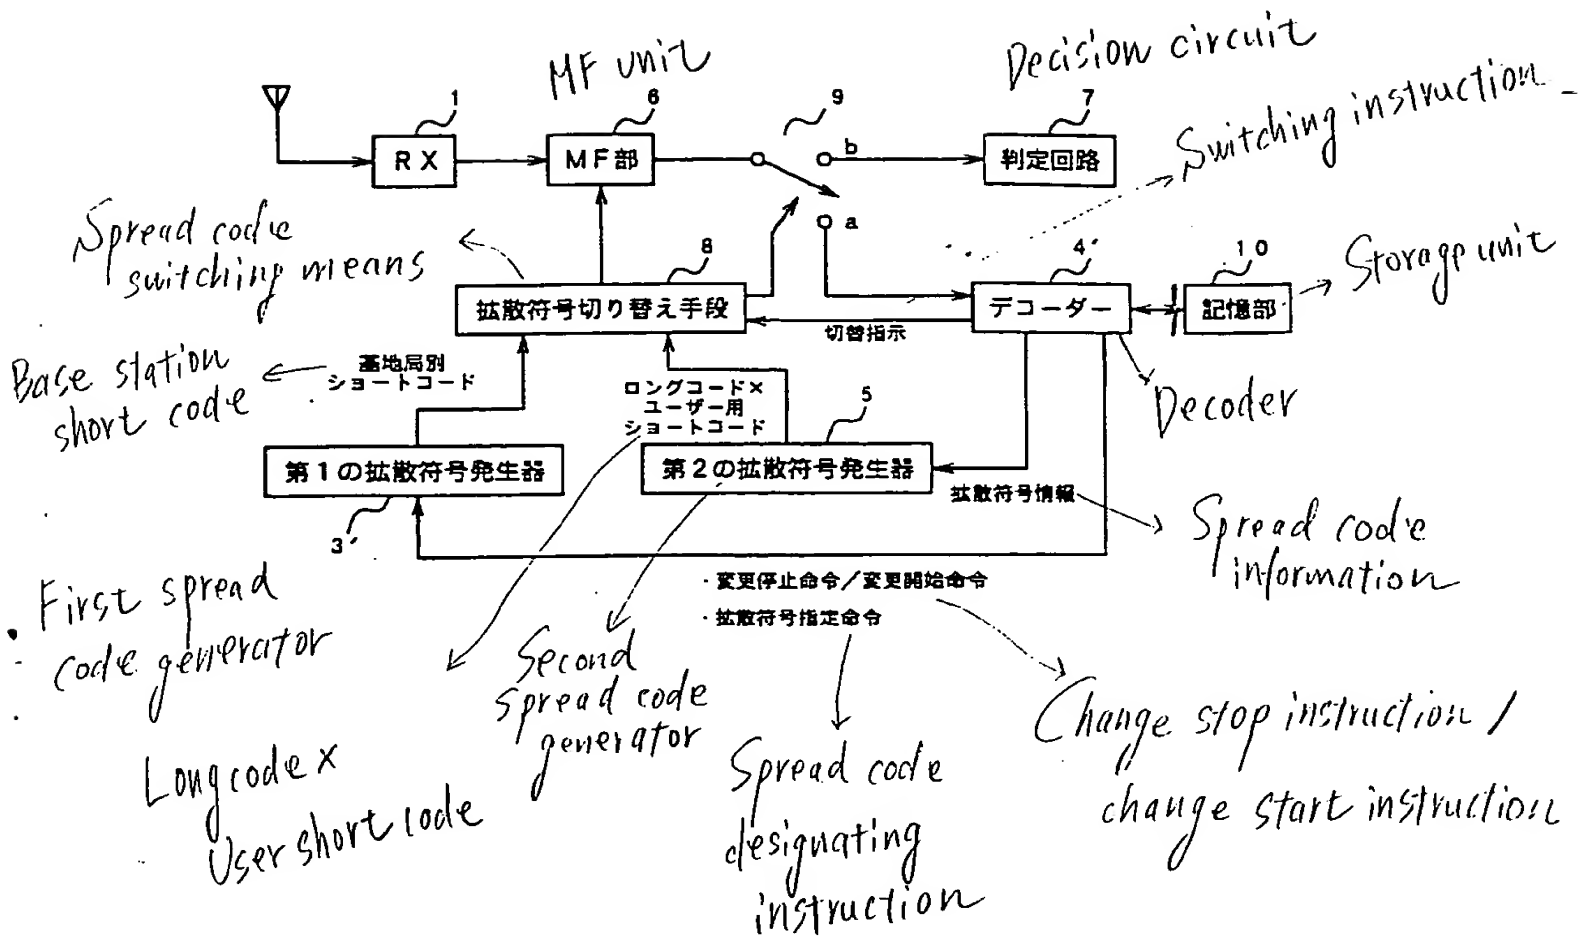 MF unit
Decision circuit
1
6
9
7
Switching instruction
RX
MF部
b
判定回路
a
Spread code
switching means
8
4'
10
Storage unit
拡散符号切り替え手段
デコーダー
記憶部
切替指示
Base station
short code
基地局別
ショートコード
ロングコード×
ユーザー用
ショートコード
5
Decoder
第1の拡散符号発生器
第2の拡散符号発生器
拡散符号情報
3'
Spread code
information
・変更停止命令/変更開始命令
・拡散符号指定命令
First spread
code generator
Second
spread code
generator
Long code x
User short code
Spread code
designating
instruction
Change stop instruction /
change start instruction